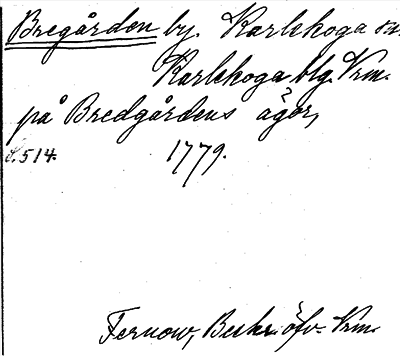 Bregården by. Karlskoga sn.
Karlskoga blg. Vrm.
på Bredgårdens ägor,
S. 514. 1779.
Fernow, Beskr. öfv. Vrm.